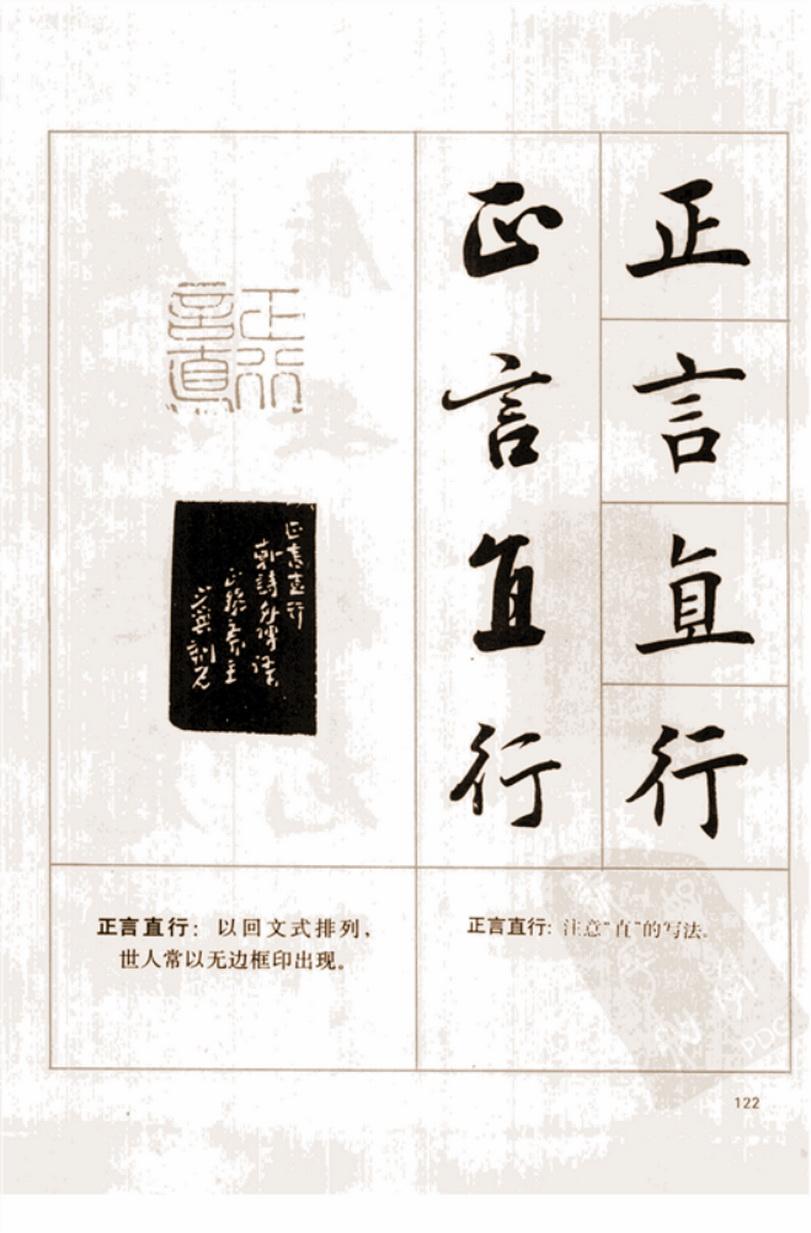 正言直行
正言直行
正言
直行
正言直行
正言直行：以回文式排列，
世人常以无边框印出现。
正言直行：注意“直”的写法。
122
PDG